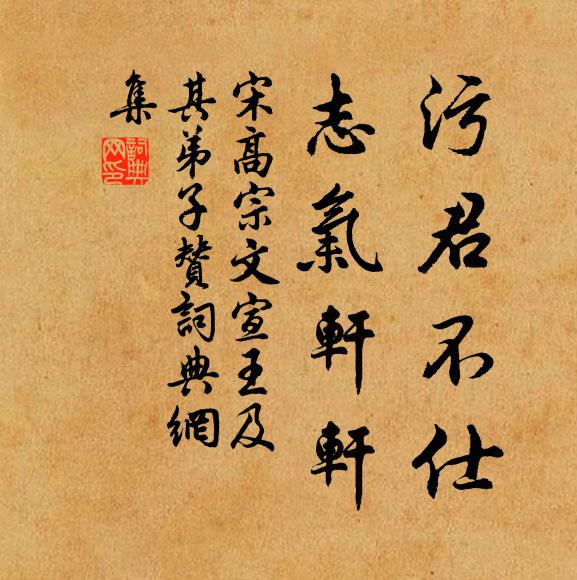 污君不仕
志氣軒軒
宋高宗文宣王及
其弟子贊詞典網
集
詞典網印